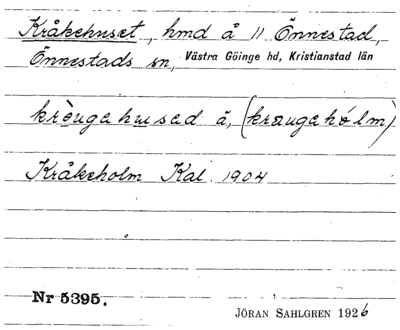 Kråkehuset, hmd å 11 Önnestad,
Önnestads sn, Västra Göinge hd, Kristianstad län
kròugahusad å, (kraugahólm)
Kråkeholm Kal. 1904
Nr 5395.
JÖRAN SAHLGREN 1926